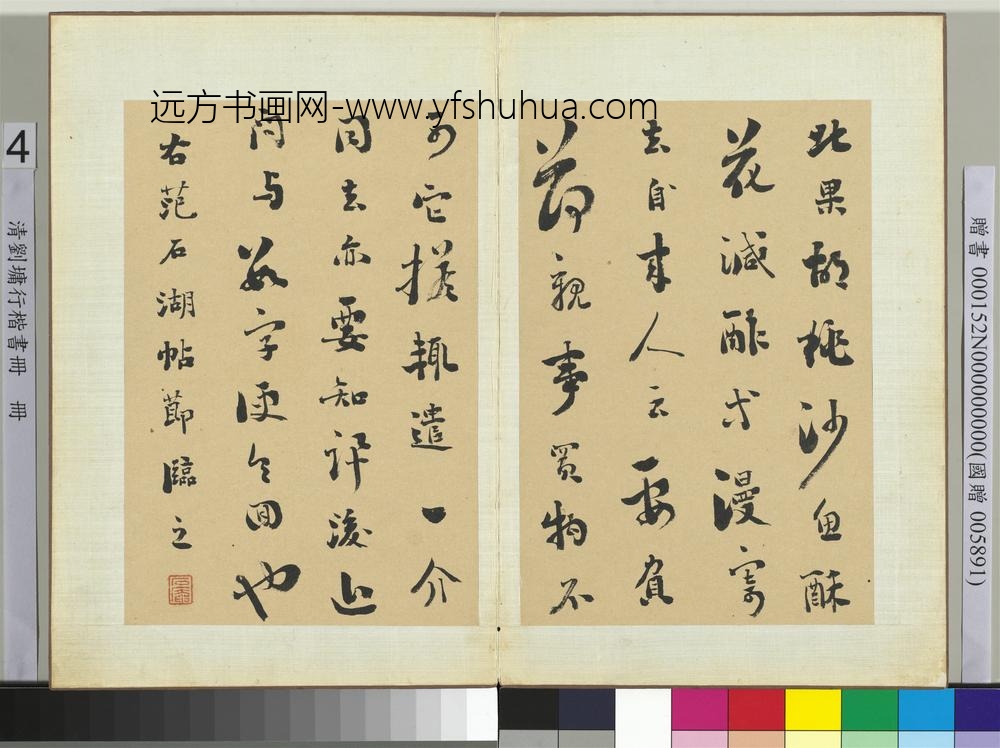 远方书画网-www.yfshuhua.com
北果胡桃沙魚酥
花減酢少漫寄
去自來人云要
親事買物不
可它搭輒遣一介
同去亦要知許後止
同与數字便令回也
右范石湖帖節臨之
4
清劉墉行楷書冊 冊
贈書 000152N000000000(國贈 005891)